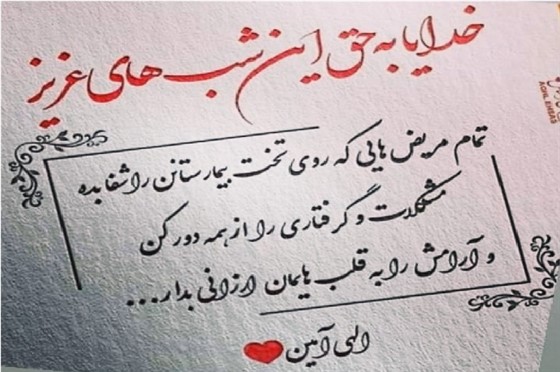 خدایا به حق این شب های عزیز
تمام مریض هایی که روی تخت بیمارستانن را شفا بده
مشکلات و گرفتاری را از همه دور کن
و آرامش را به قلب هایمان ارزانی بدار...
الهی آمین